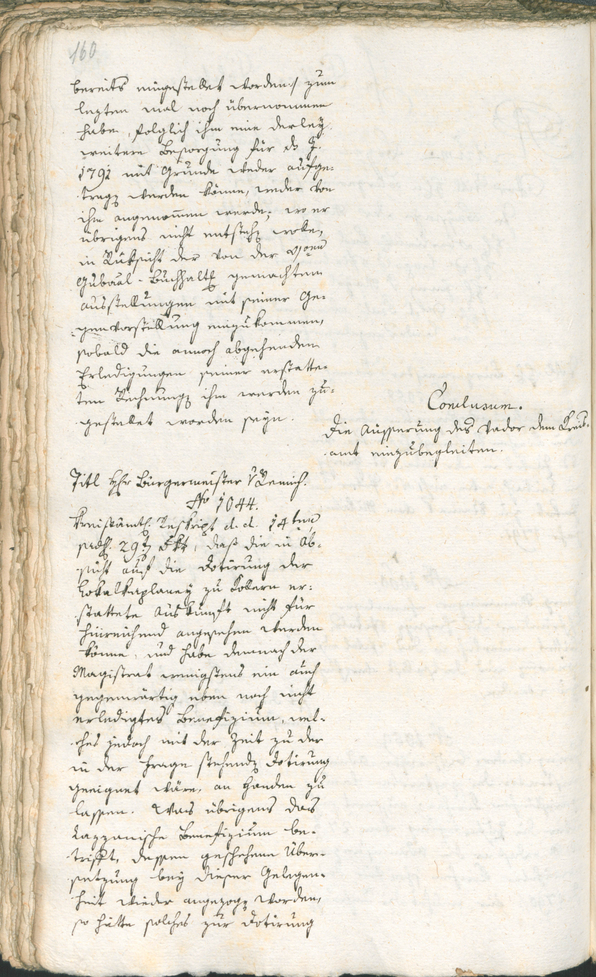 160.
bereits eingestellet worden, zum
lezten mal noch übernommen
habe, folglich ihm eine derley
weitere Besorgung für ds J.
1792 mit Grunde weder aufge-
trag werden könne, weder von
ihm angenommen werde. wo er
übrigens nicht entsteh wolle,
in Rüksicht der von der
Gubäal-Buchhalt gemachten
Ausstellungen mit seiner Ge-
genvorstellung einzukommen,
sobald die annoch abgehenden
Erledigungen seiner erstatte-
ten Rechnung ihm werden zu-
gestellet worden seyn.
Conclusum.
Die Äusserung des Pador dem Kreis-
amt einzubegleiten.
Titl Hr Bürgermeister
No 1044.
Kreisämtl. Reskript d. d. 14ten
29 8br, daß die in Ab-
sicht auf die Dotirung der
Lokalkaplaney zu Kobern er-
stattete Auskunft nicht für
hinreichend angesehen werden
könne, und habe demnach der
Magistrat wenigstens ein auch
gegenwärtig eben noch nicht
erledigtes Benefizium, wel-
ches jedoch mit der Zeit zu der
in der Frage stehend Dotirung
geeignet wäre, an Handen zu
lassen. Was übrigens das
Lazzarische Benefizium be-
trift, dessen geschehene Über-
setzung bey dieser Gelegen-
heit wieder angezog worden,
so hätte solches zur Dotirung